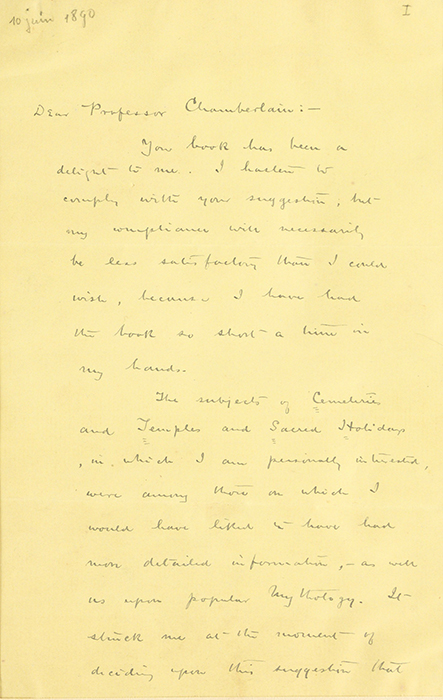 10 juin 1890
I
Dear Professor Chamberlain:—
Your book has been a
delight to me. I hasten to
comply with your suggestion, but
my compliance will necessarily
be less satisfactory than I could
wish, because I have had
the book so short a time in
my hands.
The subjects of Cemeteries
and Temples and Sacred Holidays
, in which I am personally interested,
were among those on which I
would have liked to have had
more detailed information,— as well
as upon popular Mythology. It
struck me at the moment of
deciding upon this suggestion that